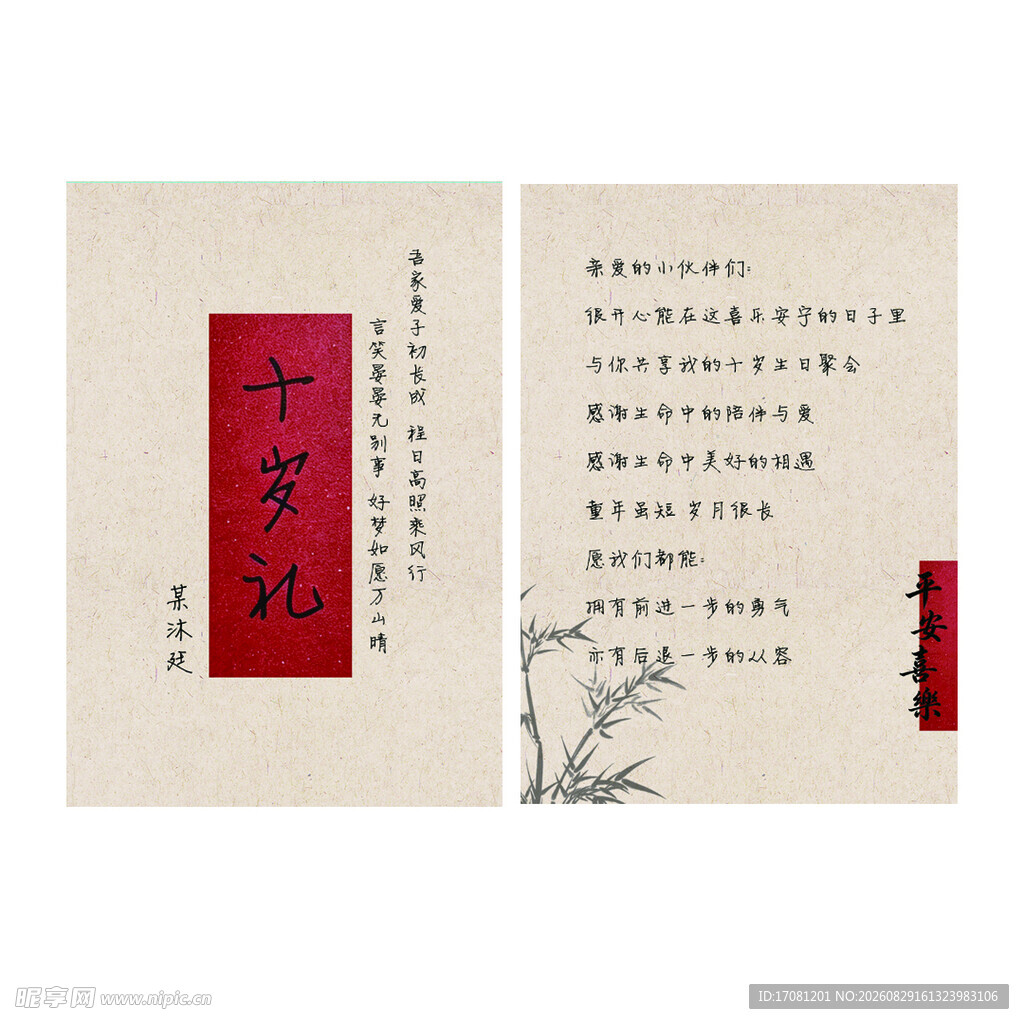 吾家爱子初长成 程日高照乘风行
言笑晏晏无别事 好梦如愿万山晴
十岁礼
某沐廷
亲爱的小伙伴们:
很开心能在这喜乐安宁的日子里
与你共享我的十岁生日聚会
感谢生命中的陪伴与爱
感谢生命中美好的相遇
童年虽短 岁月很长
愿我们都能:
拥有前进一步的勇气
亦有后退一步的从容
平安喜樂
昵享网 www.nipic.cn
ID:17081201 NO:20260829161323983106